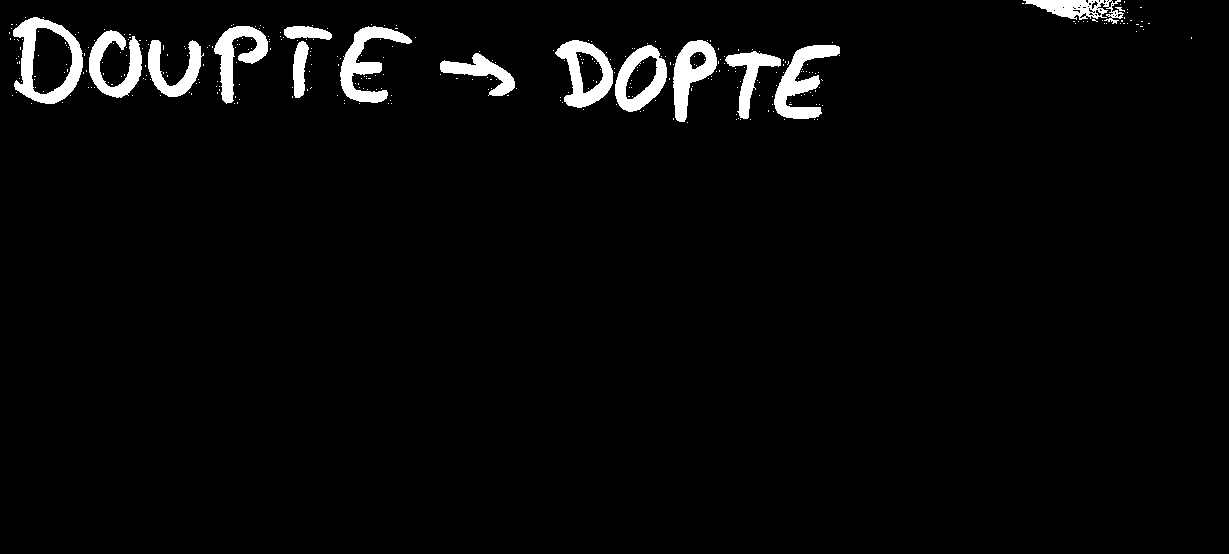 DOUPTE → DOPTE